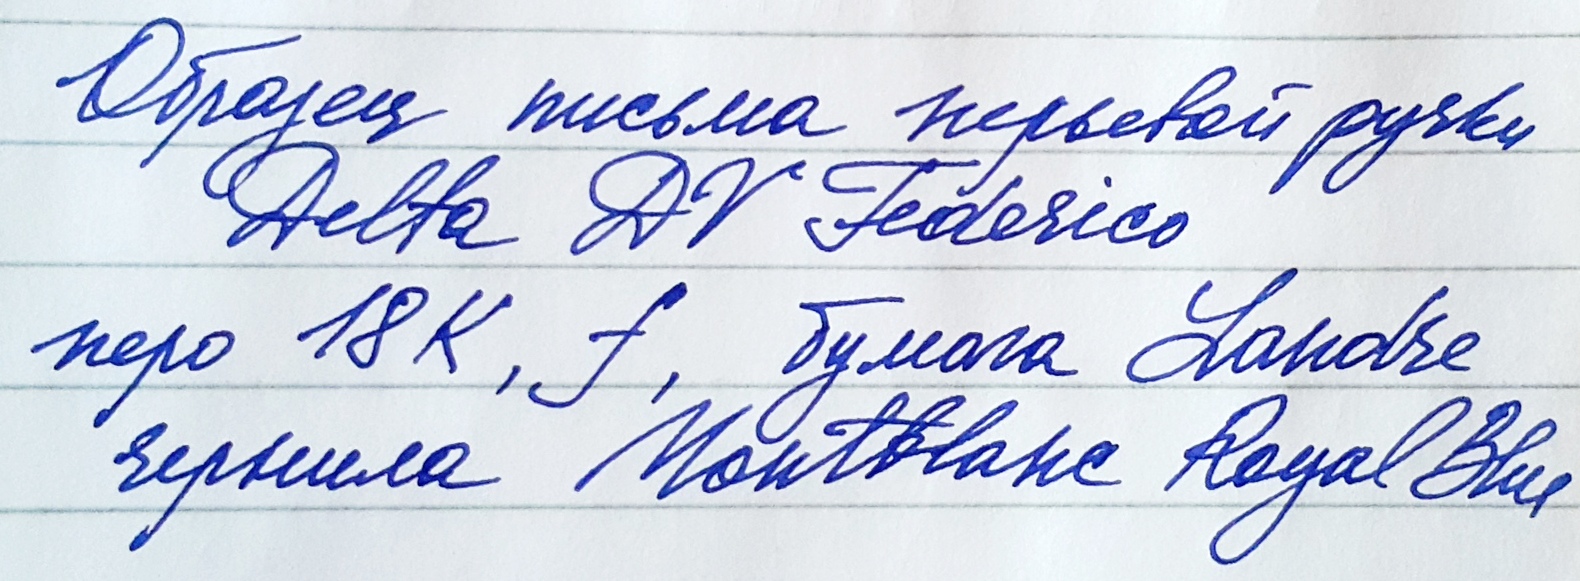 Образец письма перьевой ручки
Delta DV Federico
перо 18K, f, бумага Landre
чернила Montblanc Royal Blue